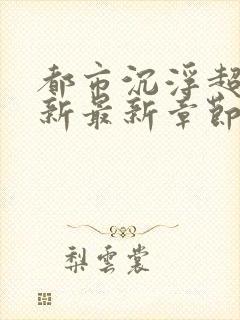 都市沉浮超
新最新章節
梨雲裳